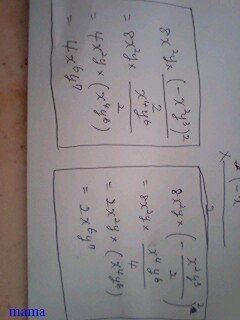 8x²y × (-x²y³)²/2
= 8x²y × x⁴y⁶/2
= 4x²y × (x⁴y⁶)
= 4x⁶y⁷
8x²y × (-x²y³/2)²
= 8x²y × x⁴y⁶/4
= 2x²y × (x⁴y⁶)
= 2x⁶y⁷
mama